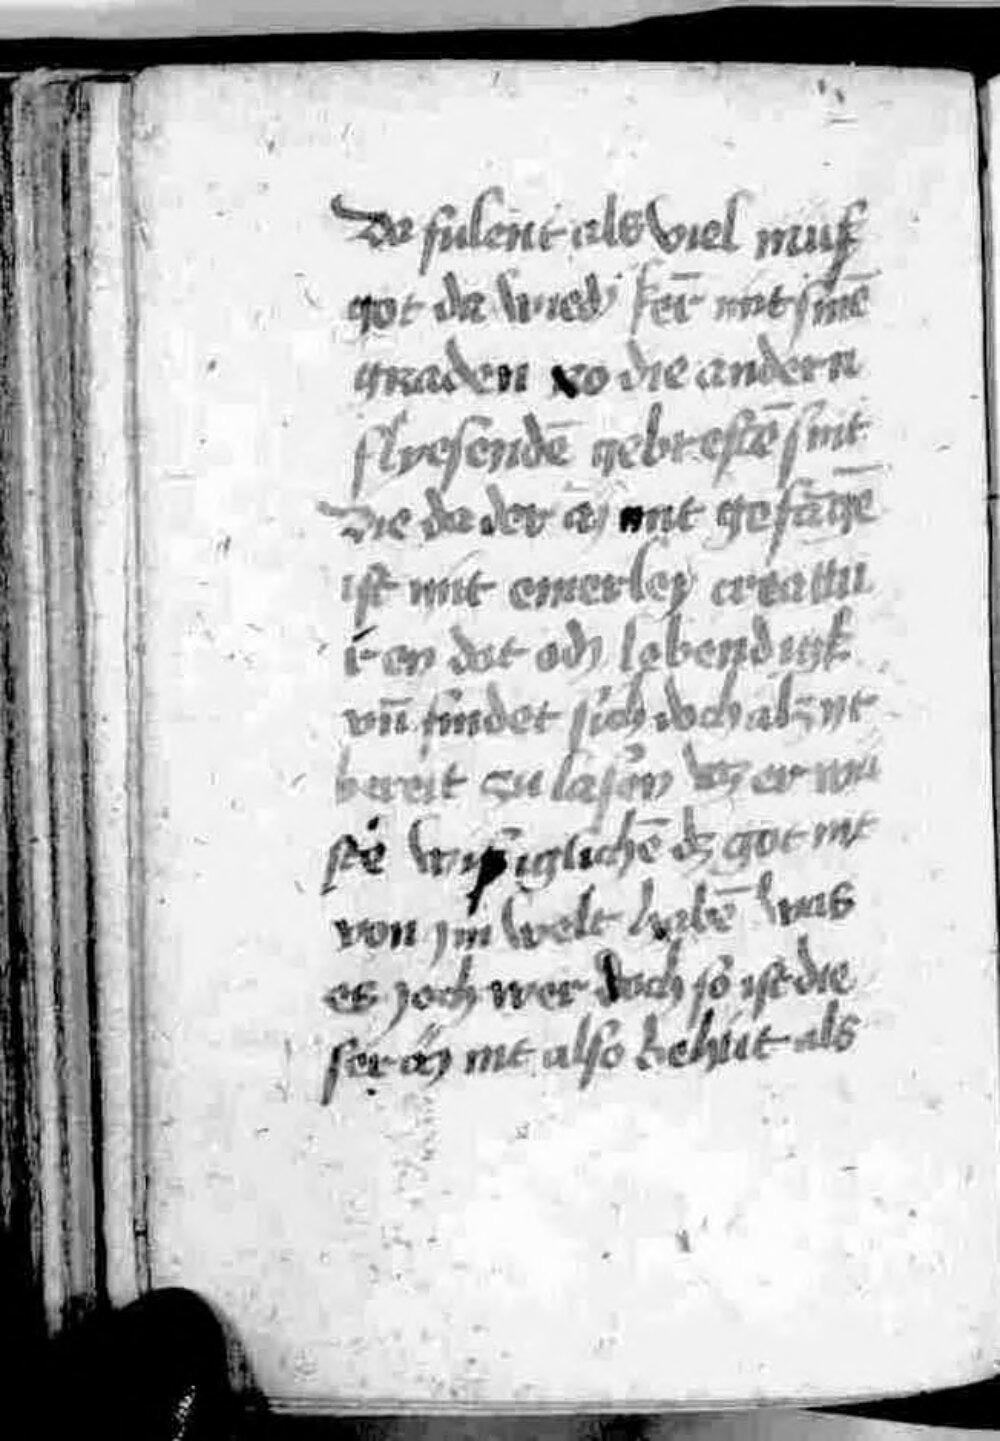 Da fulent als viel muß
got da wieď ker̄ mit sinē
gnaden zo die andern
flyesendē gebrestē sint
Die da der mit gefāgē
ist mit einerley creattu
ren dot od lebendigk
vn̄ findet sich doch alzyt
bereit zu lasen dz er wu
ste wißiglichē dz got nit
von jm welt habē was
es joch wer doch so ist die
ser nit also behüt als